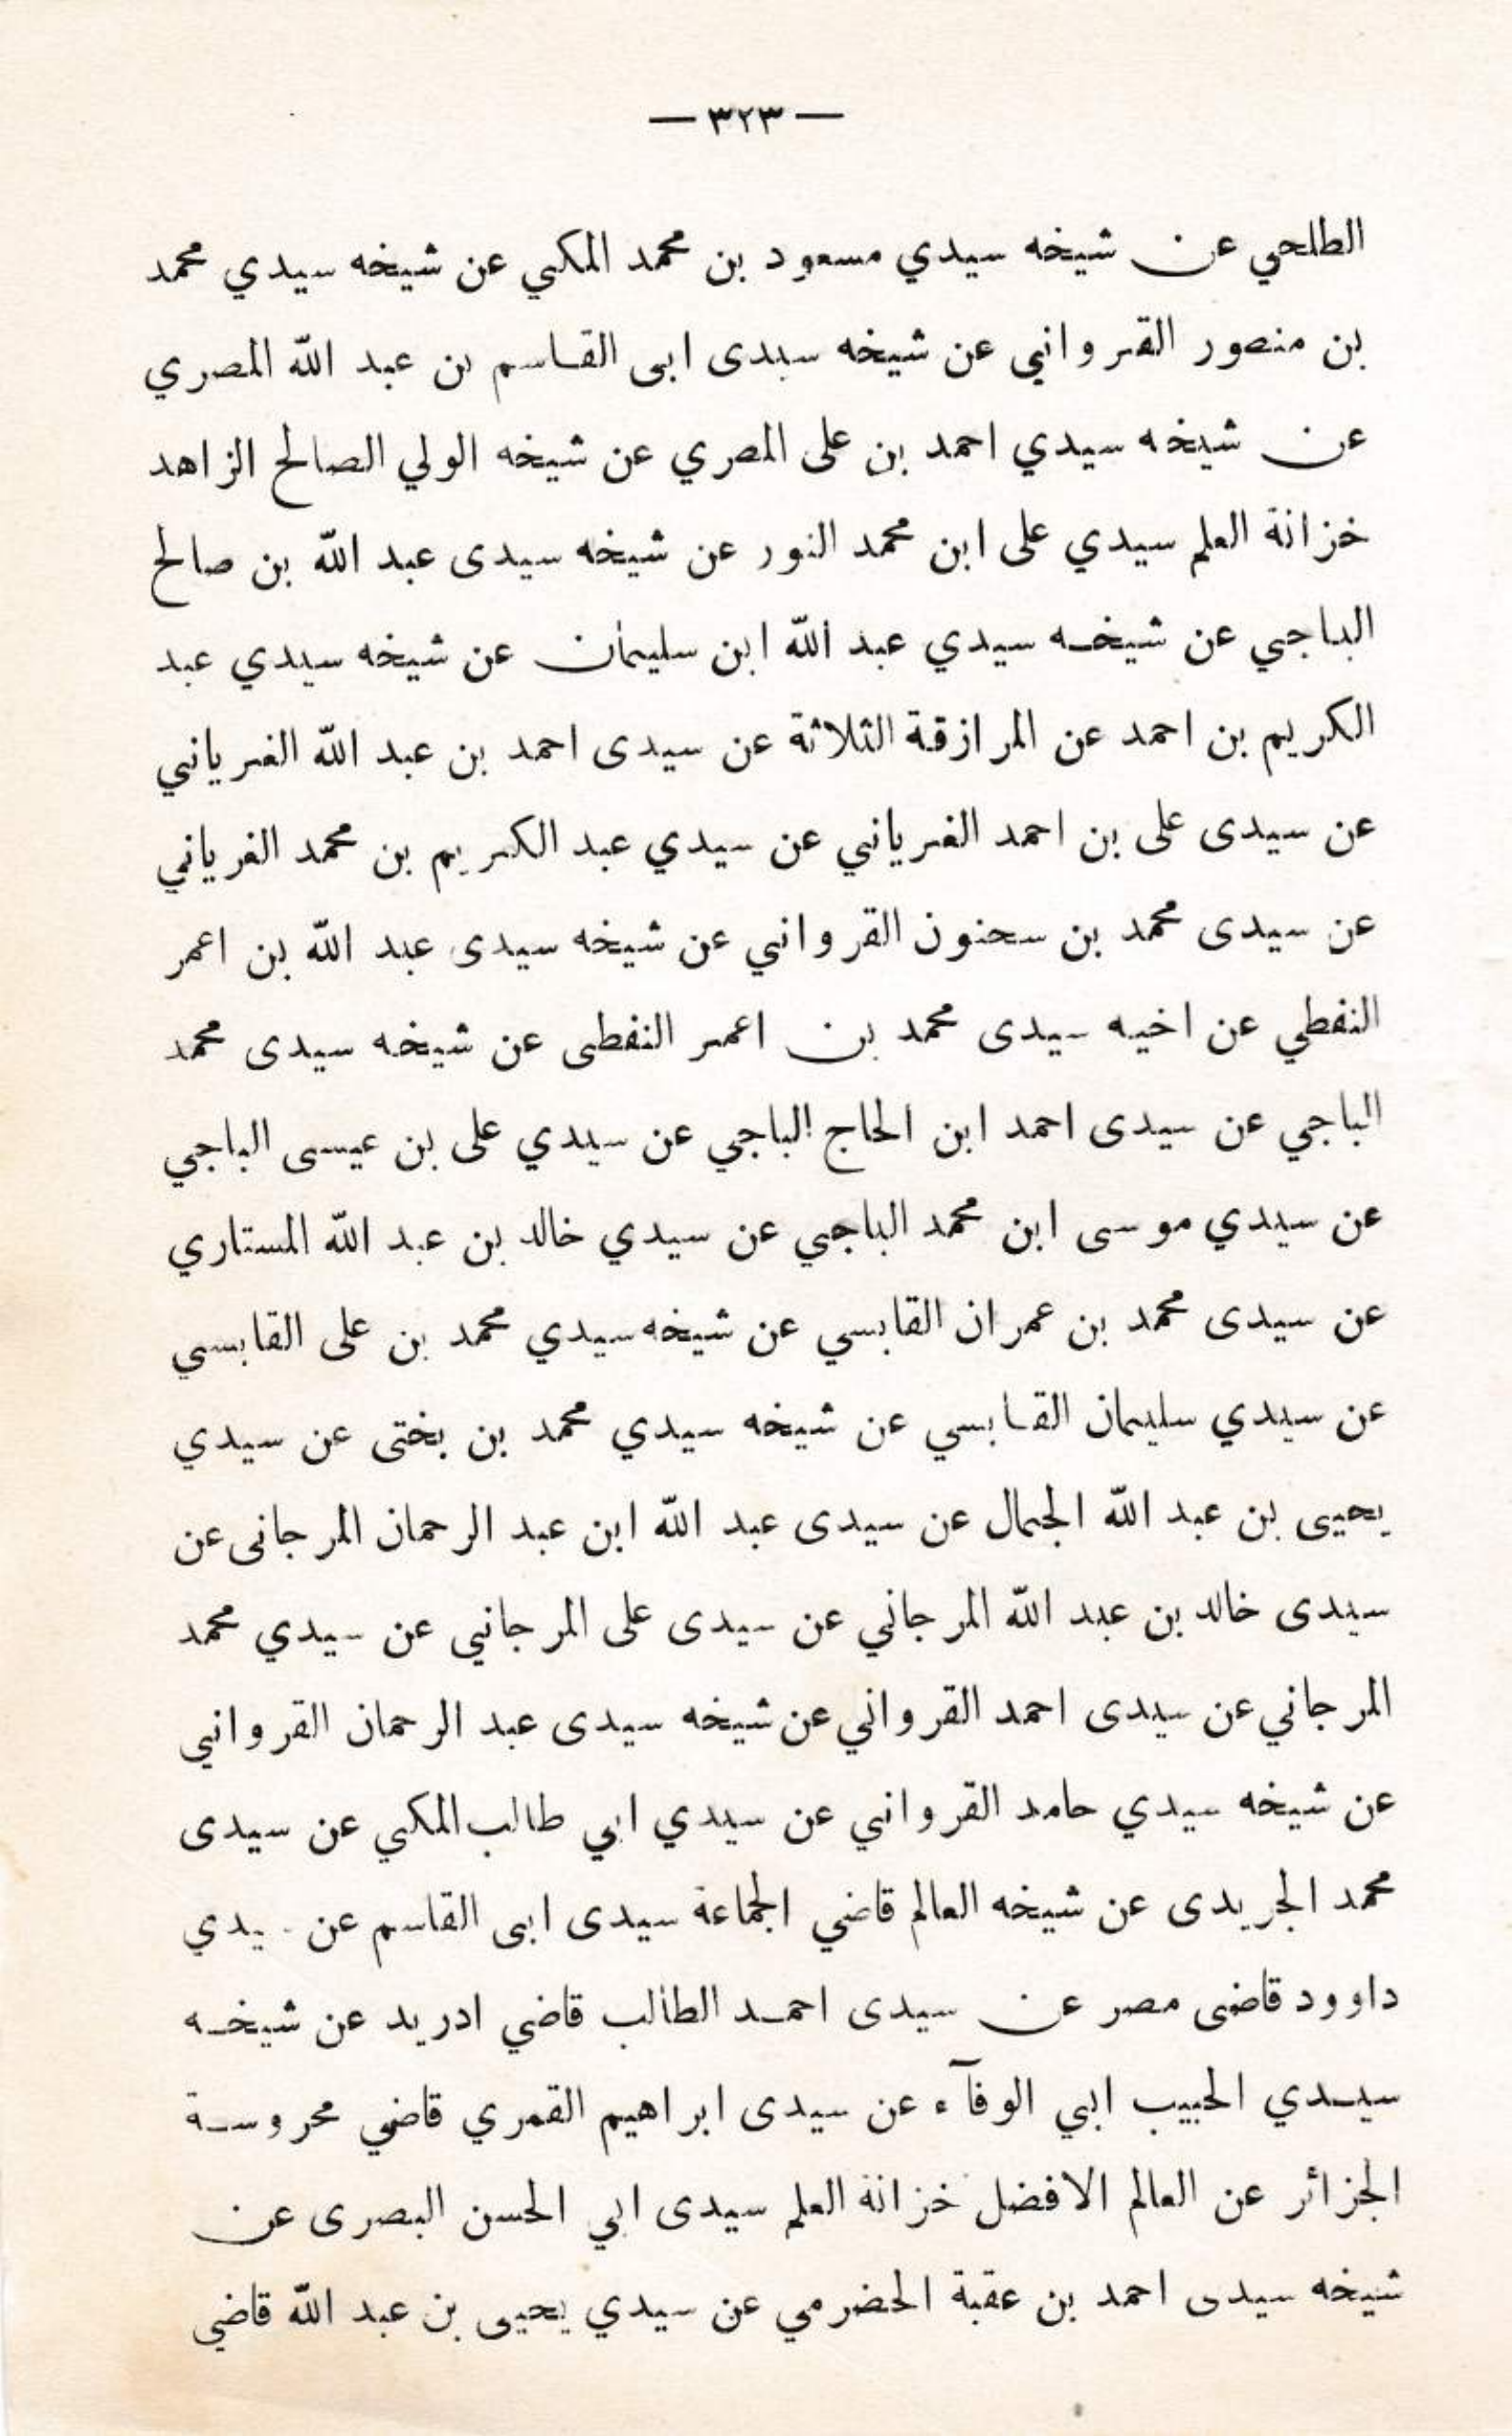 — ٣٢٣ —
الطلحي عن شيخه سيدي مسعود بن محمد المكي عن شيخه سيدي محمد
بن منصور القرواني عن شيخه سيدى ابى القاسم بن عبد الله المصري
عن شيخه سيدي احمد بن على المصري عن شيخه الولي الصالح الزاهد
خزانة العلم سيدي على ابن محمد النور عن شيخه سيدى عبد الله بن صالح
الباجي عن شيخه سيدي عبد الله ابن سليمان عن شيخه سيدي عبد
الكريم بن احمد عن المرازقة الثلاثة عن سيدى احمد بن عبد الله الغرياني
عن سيدى على بن احمد الغرياني عن سيدي عبد الكريم بن محمد الغرياني
عن سيدى محمد بن سحنون القرواني عن شيخه سيدى عبد الله بن اعمر
النفطي عن اخيه سيدى محمد بن اعمر النفطى عن شيخه سيدى محمد
الباجي عن سيدى احمد ابن الحاج الباجي عن سيدي على بن عيسى الباجي
عن سيدي موسى ابن محمد الباجي عن سيدي خالد بن عبد الله المستاري
عن سيدى محمد بن عمران القابسي عن شيخه سيدي محمد بن على القابسي
عن سيدي سليمان القابسي عن شيخه سيدي محمد بن بختى عن سيدي
يحيى بن عبد الله الجمال عن سيدى عبد الله ابن عبد الرحمان المرجانى عن
سيدى خالد بن عبد الله المرجاني عن سيدى على المرجاني عن سيدي محمد
المرجاني عن سيدى احمد القرواني عن شيخه سيدى عبد الرحمان القرواني
عن شيخه سيدي حامد القرواني عن سيدي ابي طالب المكي عن سيدى
محمد الجريدى عن شيخه العالم قاضي الجماعة سيدى ابى القاسم عن سيدي
داوود قاضى مصر عن سيدى احمد الطالب قاضي ادريد عن شيخه
سيدي الحبيب ابي الوفآء عن سيدى ابراهيم القمري قاضي محروسة
الجزائر عن العالم الافضل خزانة العلم سيدى ابي الحسن البصرى عن
شيخه سيدى احمد بن عقبة الحضرمي عن سيدي يحيى بن عبد الله قاضي